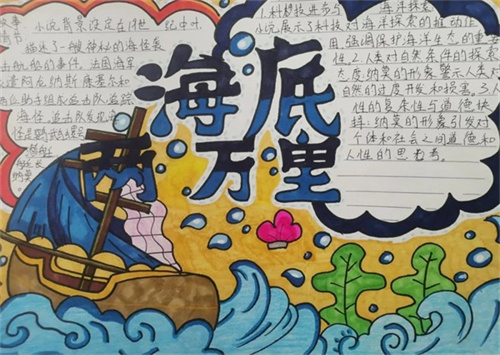 海底
两万里
故事
情节
小说背景设定在19世纪中叶
描述了一艘神秘的海怪袭
击航船的事件，法国海军
遣阿龙纳斯、康塞尔和
两位助手组成追击队追踪
海怪，追击队发现
1.科技进步与海洋探索
小说展示了科技对海洋探索的推动作
用，强调保护海洋生态的重要
性。2.人类对自然条件的探索
态度：纳莫的形象警示人类人
自然的过度开发和损害。3.人
性的复杂性与道德抉
择：纳莫的形象引发对
个体和社会之间道德和
人性的思考。